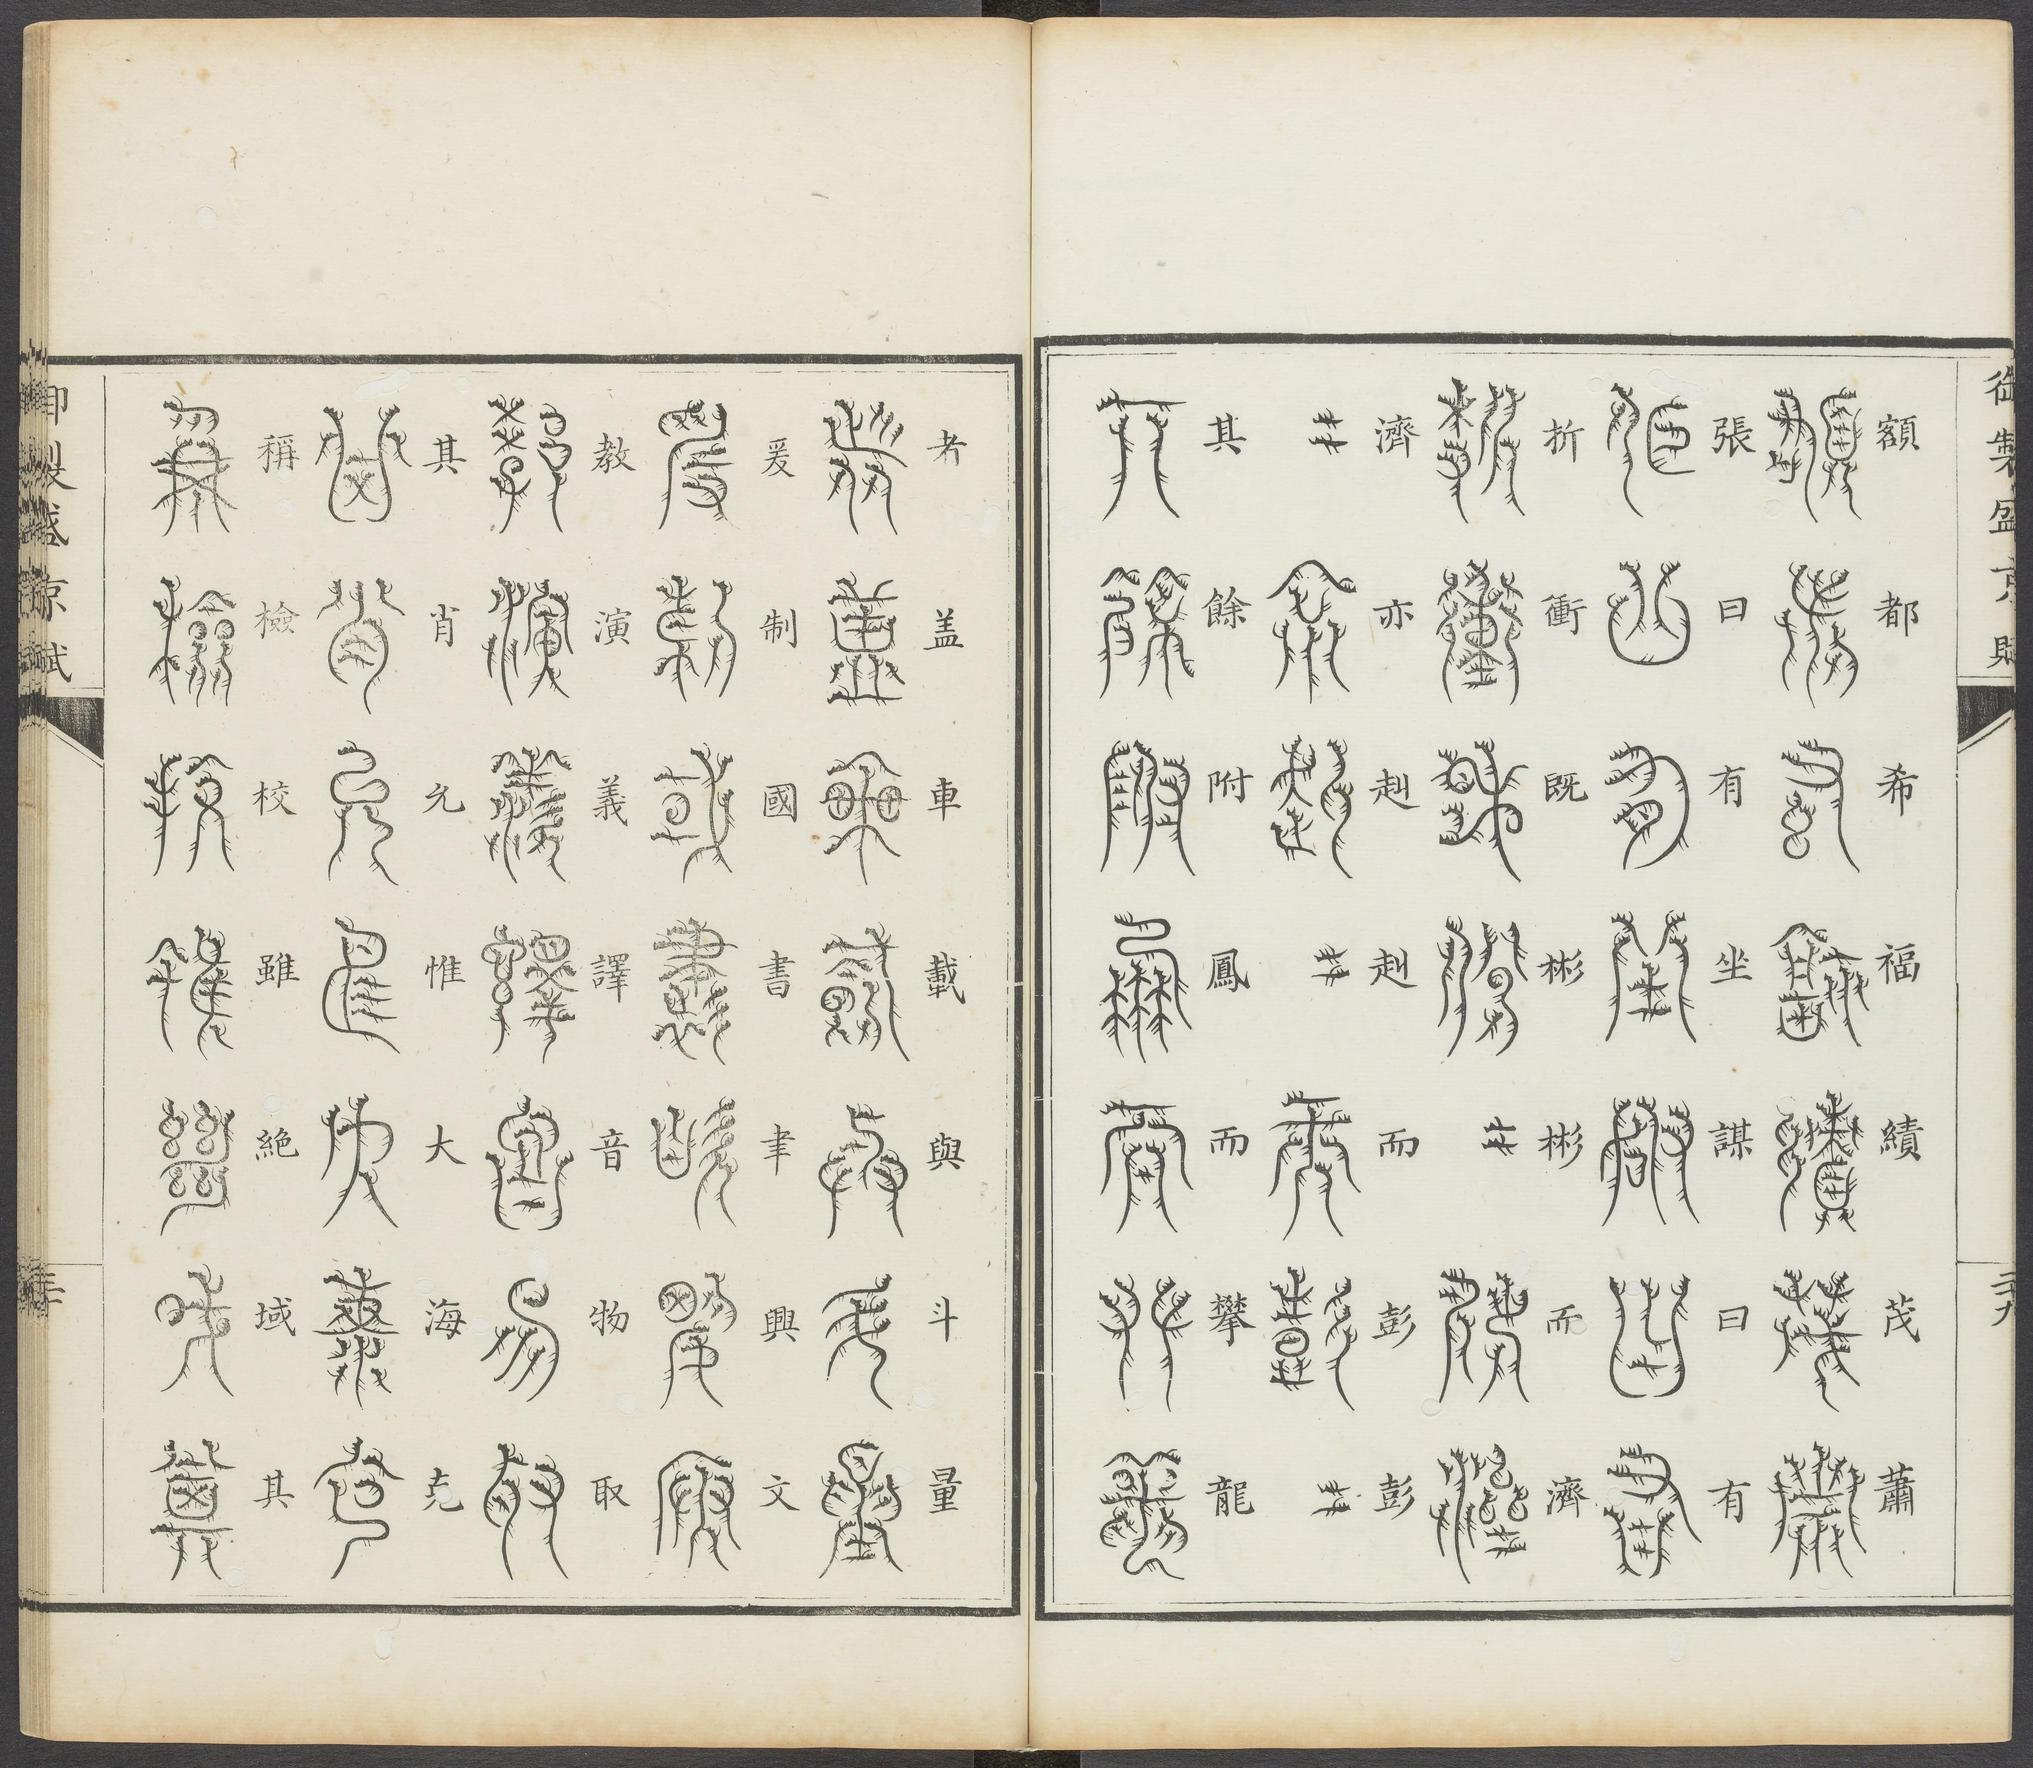 御製盛京賦
二十九
額都希福績茂蕭
張曰有坐謀曰有
折衝既彬彬而濟
濟亦赳赳而彭彭
其餘附鳳而攀龍
者盖車載與斗量
爰制國書聿興文
教演義譯音物取
其肖允惟大海克
稱檢校雖絶域其
御製盛京賦
三十